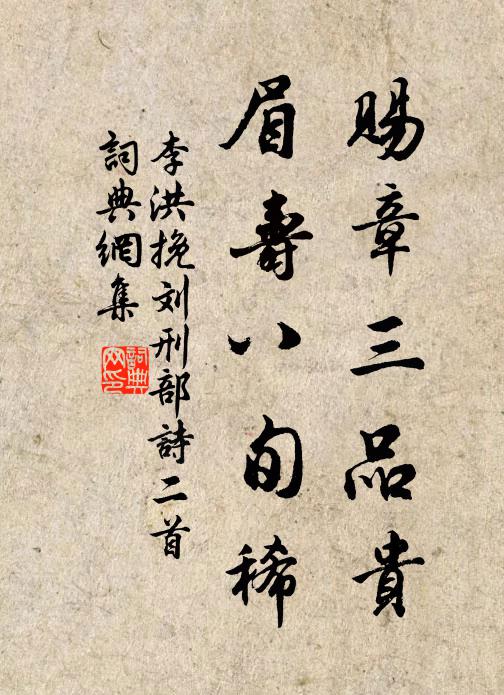 賜章三品貴
眉壽八旬稀
李洪挽刘刑部詩二首
詞典網集
詞典
网印